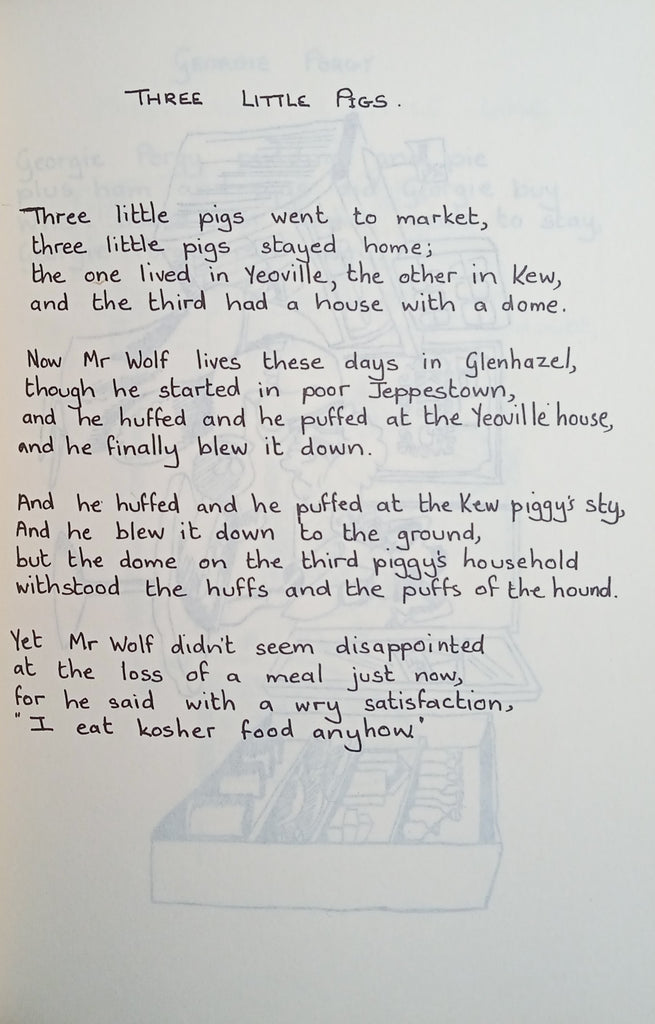 THREE LITTLE PIGS.
Three little pigs went to market,
three little pigs stayed home;
the one lived in Yeoville, the other in Kew,
and the third had a house with a dome.
Now Mr Wolf lives these days in Glenhazel,
though he started in poor Jeppestown,
and he huffed and he puffed at the Yeoville house,
and he finally blew it down.
And he huffed and he puffed at the Kew piggy's sty,
And he blew it down to the ground,
but the dome on the third piggy's household
withstood the huffs and the puffs of the hound.
Yet Mr Wolf didn't seem disappointed
at the loss of a meal just now,
for he said with a wry satisfaction,
"I eat kosher food anyhow."